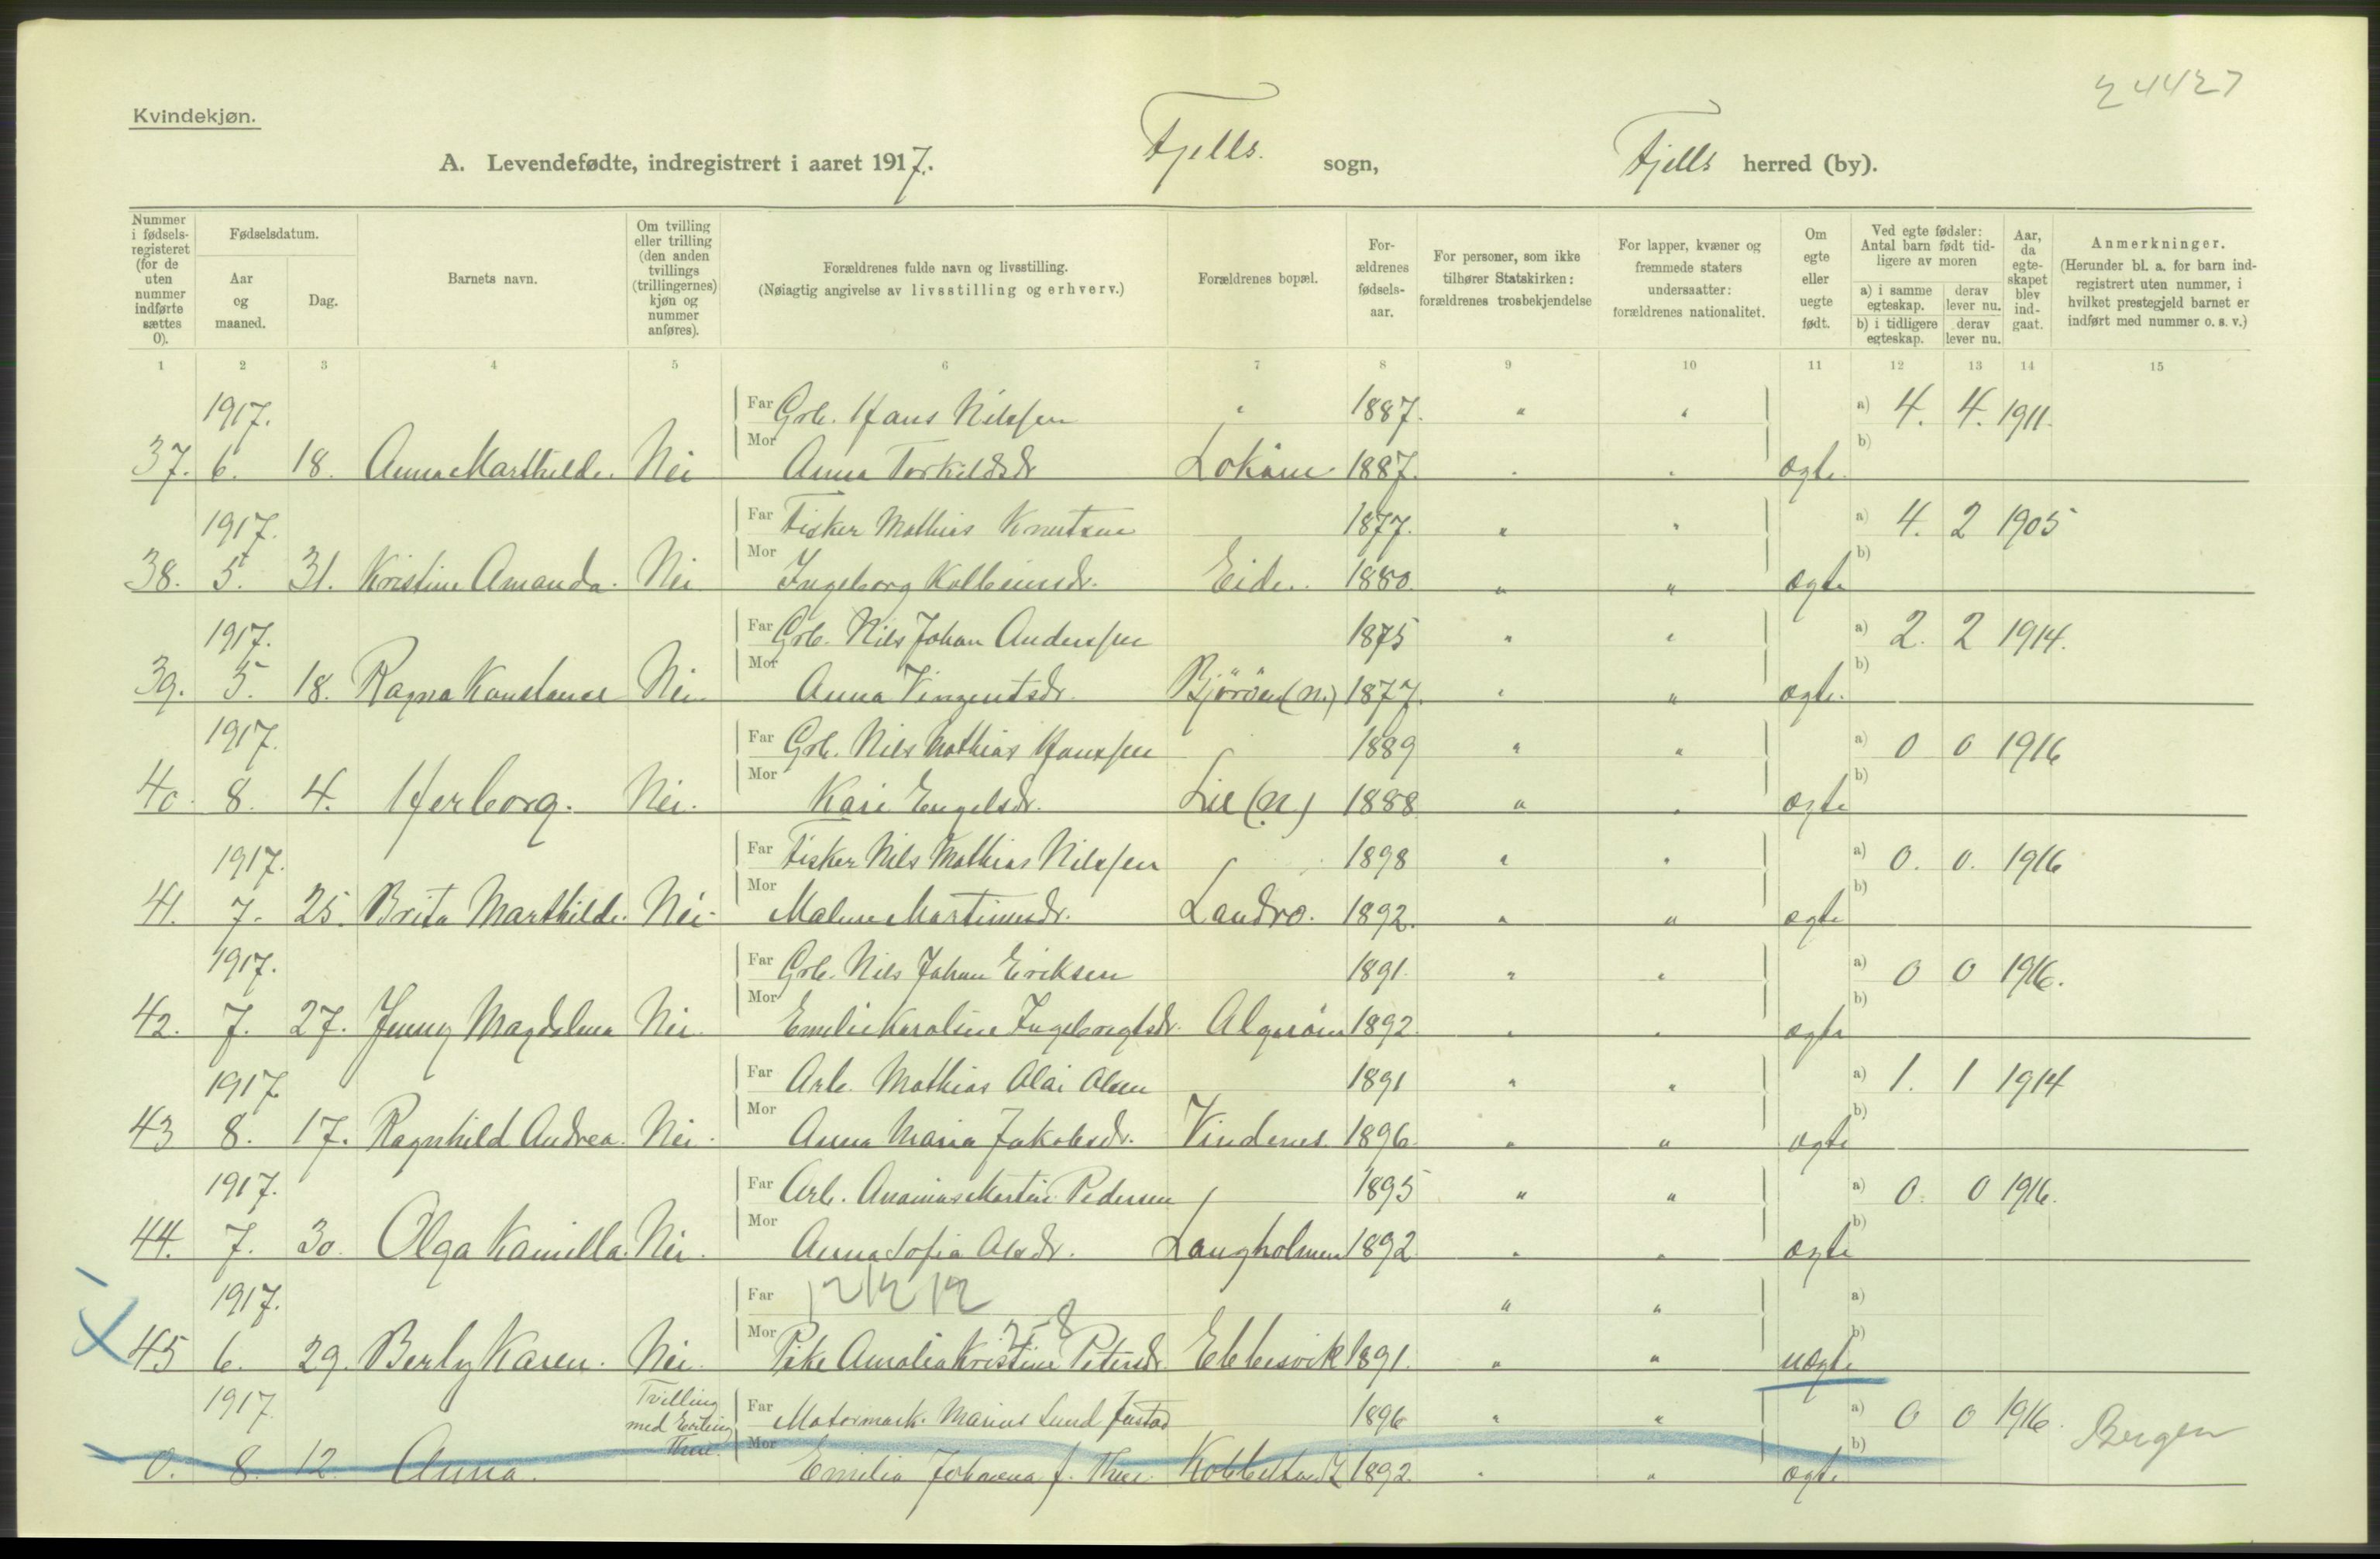 24427
Kvindekjøn.
A. Levendefødte, indregistrert i aaret 1917. Fjells sogn, Fjells herred (by).
Nummer i fødsels-registeret (for de uten nummer indførte sættes 0).
Fødselsdatum.
Aar og maaned.
Dag.
Barnets navn.
Om tvilling eller trilling (den anden tvillings (trillingernes) kjøn og nummer anføres).
Forældrenes fulde navn og livsstilling.
(Nøiagtig angivelse av livsstilling og erhverv.)
Forældrenes bopæl.
For-ældrenes fødsels-aar.
For personer, som ikke tilhører Statskirken: forældrenes trosbekjendelse
For lapper, kvæner og fremmede staters undersaatter: forældrenes nationalitet.
Om egte eller uegte født.
Ved egte fødsler: Antal barn født tid-ligere av moren
a) i samme egteskap. derav lever nu.
b) i tidligere egteskap. derav lever nu.
Aar, da egte-skapet blev ind-gaat.
Anmerkninger.
(Herunder bl. a. for barn ind-registrert uten nummer, i hvilket prestegjeld barnet er indført med nummer o. s. v.)
1 2 3 4 5 6 7 8 9 10 11 12 13 14 15
1917. Far Grb. Hans Nilssen " 1887. " " a) 4. 4. 1911.
37. 6. 18. Anna Marthilde. Nei Mor Anna Torkildsdr Lokøen 1887. " " ægte. b)
1917. Far Fisker Mathias Knutsen 1877. " " a) 4. 2 1905
38. 5. 31. Kristine Amanda. Nei Mor Ingeborg Kolbeinsdr. Eide. 1880. " " ægte b)
1917. Far Grb. Nils Johan Anderssen 1875 " " a) 2. 2 1914.
39. 5. 18. Ragna Konstanse Nei Mor Anna Vinzentsdr. Bjørøen (n.) 1877. " " ægte. b)
1917. Far Grb. Nils Mathias Hanssen 1889 " " a) 0 0 1916
40. 8. 4. Herborg. Nei. Mor Kari Engelsdr. Lie (n) 1888 " " ægte b)
1917. Far Fisker Nils Mathias Nilssen 1898 " " a) 0. 0. 1916
41. 7. 25. Brita Marthilde. Nei. Mor Malene Martinusdr. Landro. 1892. " " ægte b)
1917. Far Grb. Nils Johan Eriksen 1891. " " a) 0 0 1916.
42. 7. 27. Jenny Magdalena Nei. Mor Emelie Karoline Ingebrigtsdr. Algerøen 1892. " " ægte b)
1917 Far Arb. Mathias Olai Olsen 1891 " " a) 1. 1 1914
43 8. 17. Ragnhild Andrea. Nei. Mor Anna Maria Jakobsdr. Vindenes. 1896. " " ægte b)
1917. Far Arb. Ananias Martin Pedersen 1895 " " a) 0. 0 1916.
44. 7. 30. Olga Kamilla. Nei. Mor Anna Sofia Olsdr. Langholmen 1892 " " ægte b)
1917. Far " " a)
45 6. 29. Berly Karen. Nei. Mor Pike Amalia Kristine Petersdr. Ebbesvik 1891. " " uægte b)
1917 Tvilling med Far Motormask. Marius Lund 1896 " " a) 0 0 1916. Bergen
0. 8. 12. Anna. Mor Emilia Johanna f. Thue. 1892. " " ægte b)